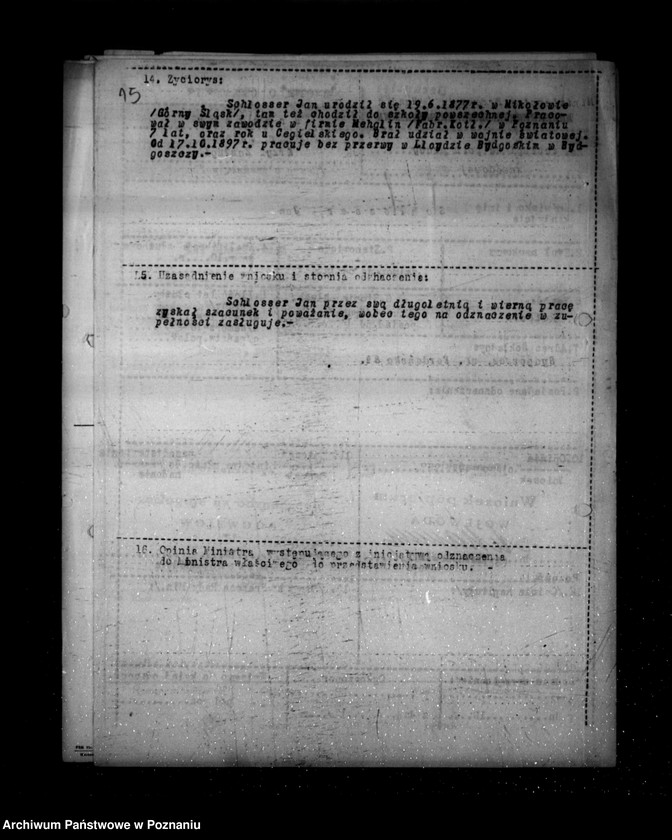 15
14. Życiorys:
Schlosser Jan urodził się 19.6.1877r. w Mikołowie
/Górny Śląsk/, tam też chodził do szkoły powszechnej. Praco-
wał w swym zawodzie w firmie Meholin /Fabr.Kotł./ w Poznaniu
7 lat, oraz rok u Cegielskiego. Brał udział w wojnie światowej.
Od 17.10.1897r. pracuje bez przerwy w Lloydzie Bydgoskim w Byd-
goszczy.-
15. Uzasadnienie wniosku i stopnia odznaczenia:
Schlosser Jan przez swą długoletnią i wierną pracę
zyskał szacunek i poważanie, wobec tego na odznaczenie w zu-
pełności zasługuje.-
16. Opinia Ministra występującego z inicjatywą odznaczenia
do Ministra właściwego do przedstawienia wniosku.
Archiwum Państwowe w Poznaniu